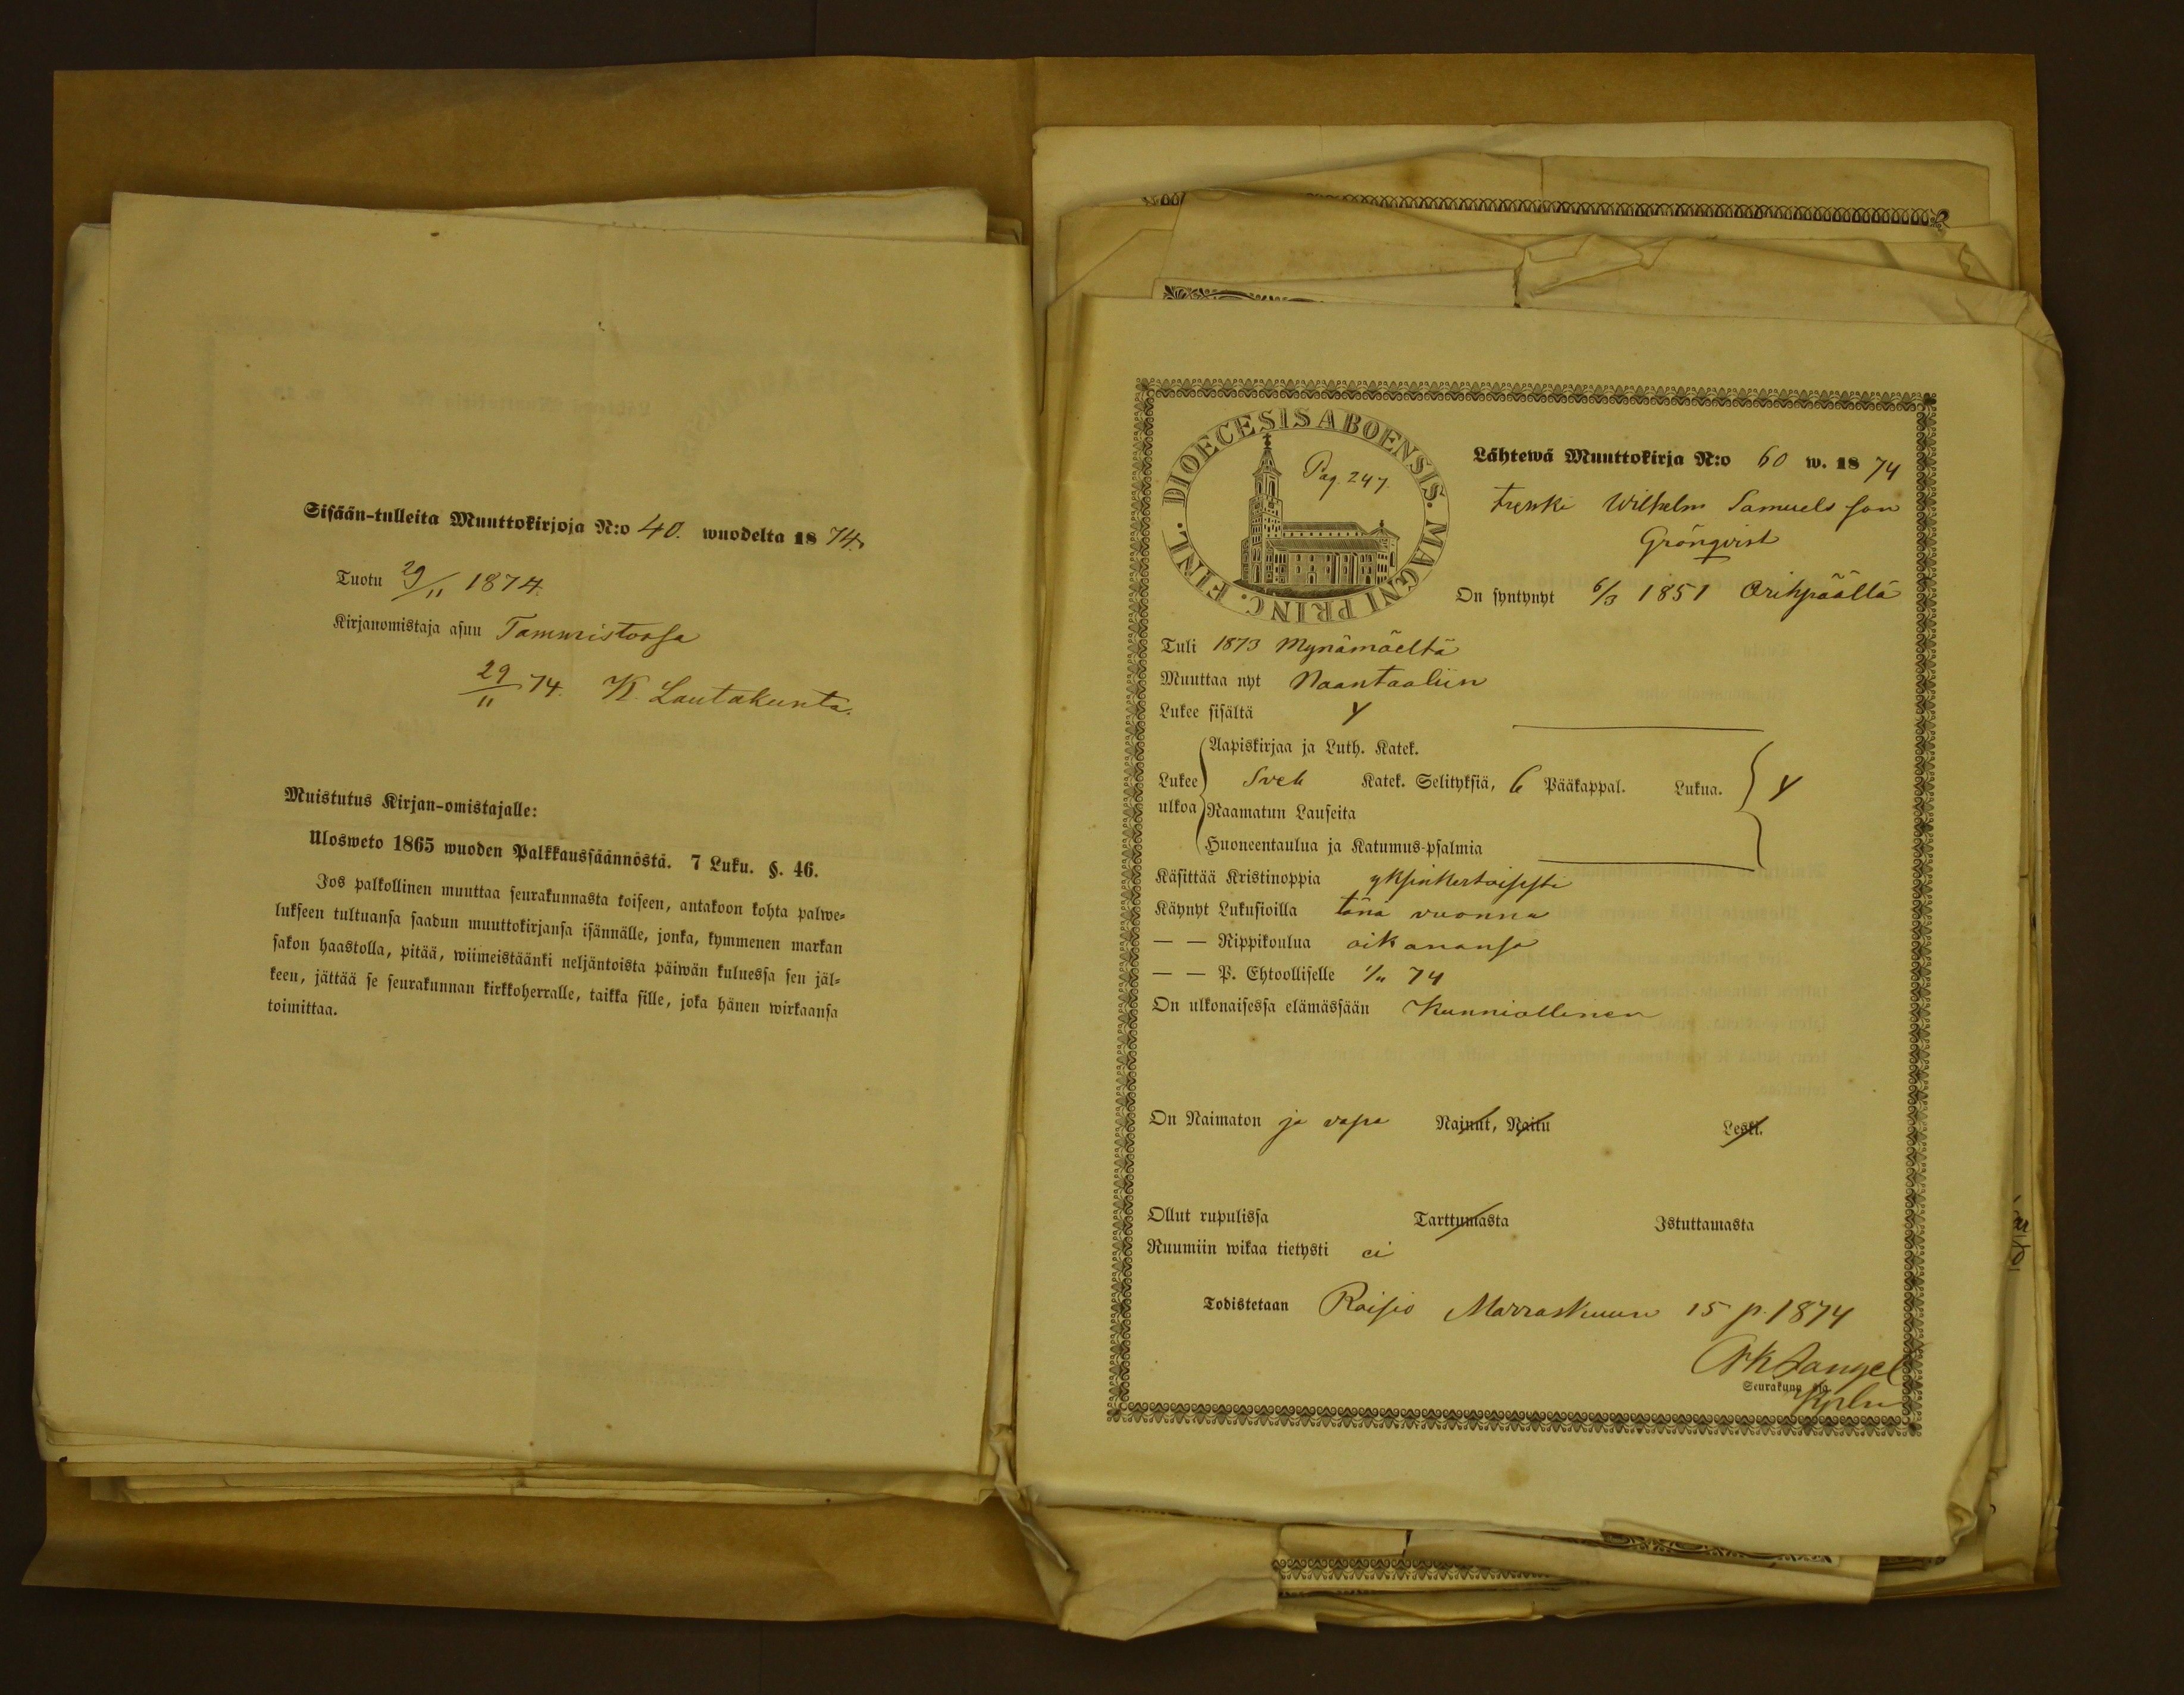 Sisään-tulleita Muuttokirjoja N:o 40. wuodelta 18 74.
Tuotu 29/11 1874.
Kirjanomistaja asuu Tammistossa
29/11 74. K. Lautakunta.
Muistutus Kirjan-omistajalle:
Ulosweto 1865 wuoden Palkkaussäännöstä. 7 Luku. §. 46.
Jos palkollinen muuttaa seurakunnasta toiseen, antakoon kohta palwe-
lukseen tultuansa saadun muuttokirjansa isännälle, jonka, kymmenen markan
sakon haastolla, pitää, wiimeistäänki neljäntoista päiwän kuluessa sen jäl-
keen, jättää se seurakunnan kirkkoherralle, taikka sille, joka hänen wirkaansa
toimittaa.
FINL. DIOECESIS ABOENSIS. MAGNI PRINC.
Pag. 247.
Lähtewä Muuttokirja N:o 60 w. 18 74
Trenki Wilhelm Samuels son
Grönqvist
On syntynyt 6/3 1851 Orihpäältä
Tuli 1873 Mynämäeltä
Muuttaa nyt Naantaaliin
Lukee sisältä Y
Aapiskirjaa ja Luth. Katek.
Lukee ulkoa Sveb Katek. Selityksiä, 6 Pääkappal. Lukua. Y
Raamatun Lauseita
Huoneentaulua ja Katumus-psalmia
Käsittää Kristinoppia yksinkertaisesti
Käynyt Lukusioilla tänä vuonna
— — Rippikoulua aikanansa
— — P. Ehtoolliselle 1/11 74
On ulkonaisessa elämässään Kunniallinen
On Naimaton ja vapa Nainut, Naitu Leski.
Ollut rupulissa Tarttumasta Istuttamasta
Ruumiin wikaa tietysti ei
Todistetaan Raisio Marraskuun 15 p. 1874
Seurakunn